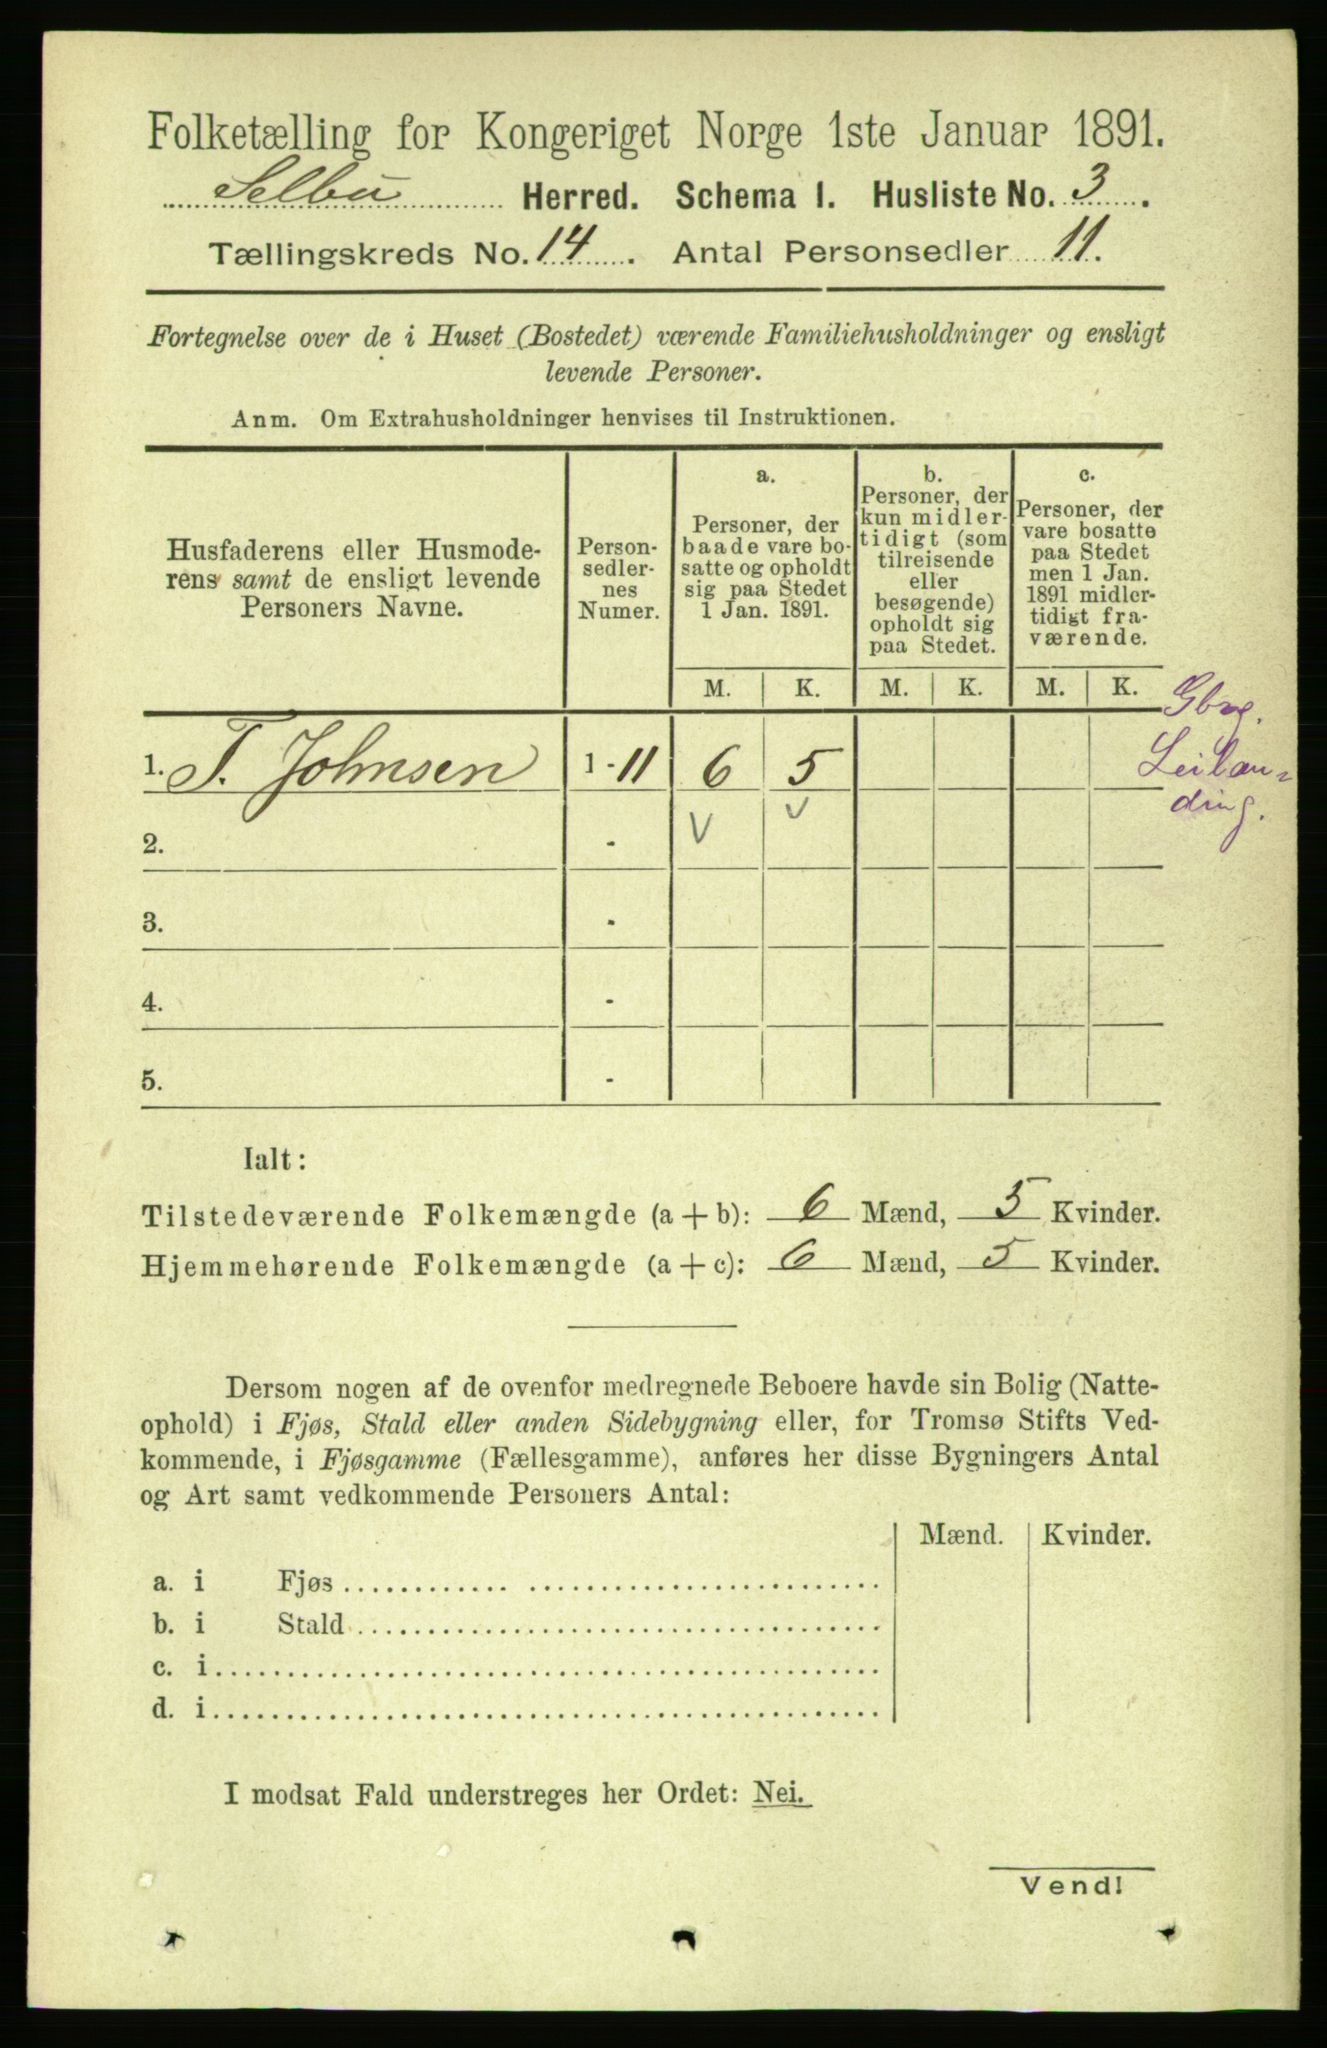 Folketælling for Kongeriget Norge 1ste Januar 1891.
Selbu Herred. Schema I. Husliste No. 3.
Tællingskreds No. 14. Antal Personsedler 11.
Fortegnelse over de i Huset (Bostedet) værende Familiehusholdninger og ensligt
levende Personer.
Anm. Om Extrahusholdninger henvises til Instruktionen.
Husfaderens eller Husmode-
rens samt de ensligt levende
Personers Navne.
Person-
sedler-
nes
Numer.
a.
Personer, der
baade vare bo-
satte og opholdt
sig paa Stedet
1 Jan. 1891.
b.
Personer, der
kun midler-
tidigt (som
tilreisende
eller
besøgende)
opholdt sig
paa Stedet.
c.
Personer, der
vare bosatte
paa Stedet
men 1 Jan.
1891 midler-
tidigt fra-
værende.
M. K. M. K. M. K.
Gbr.
1. T. Johnsen 1 - 11 6 5
Leilæn-
ding.
2. - V V
3. -
4. -
5. -
Ialt:
Tilstedeværende Folkemængde (a + b): 6 Mænd, 5 Kvinder.
Hjemmehørende Folkemængde (a + c): 6 Mænd, 5 Kvinder.
Dersom nogen af de ovenfor medregnede Beboere havde sin Bolig (Natte-
ophold) i Fjøs, Stald eller anden Sidebygning eller, for Tromsø Stifts Ved-
kommende, i Fjøsgamme (Fællesgamme), anføres her disse Bygningers Antal
og Art samt vedkommende Personers Antal:
Mænd. Kvinder.
a. i Fjøs
b. i Stald
c. i
d. i
I modsat Fald understreges her Ordet: Nei.
Vend!